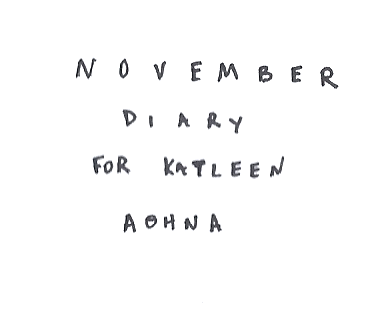 NOVEMBER
DIARY
FOR KATLEEN
AOHNA